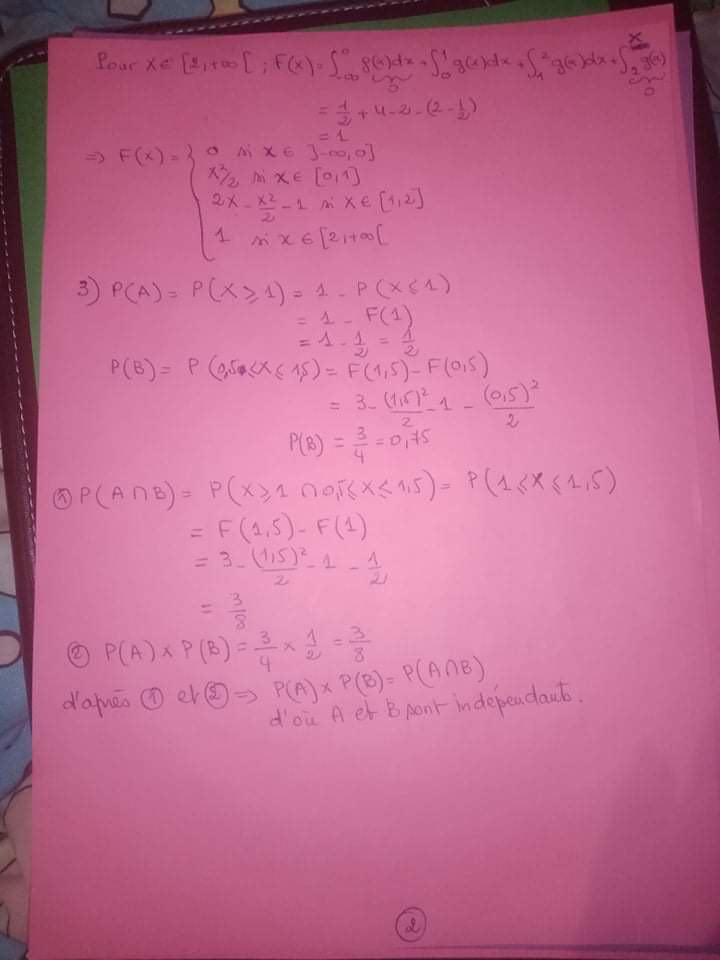 Pour x ∈ [2,+∞[ ; F(x) = ∫_{-∞}^{0} g(x)dx + ∫_0^1 g(x)dx + ∫_1^2 g(x)dx + ∫_2^x g(x)
0 0
= 1/2 + 4 - 2 - (2 - 1/2)
= 1
=> F(x) = { 0 si x ∈ ]-∞,0]
x²/2 si x ∈ [0,1]
2x - x²/2 - 1 si x ∈ [1,2]
1 si x ∈ [2,+∞[
3) P(A) = P(X ⩾ 1) = 1 - P(X ⩽ 1)
= 1 - F(1)
= 1 - 1/2 = 1/2
P(B) = P(0,5 ⩽ X ⩽ 1,5) = F(1,5) - F(0,5)
= 3 - (1,5)²/2 - 1 - (0,5)²/2
P(B) = 3/4 = 0,75
① P(A∩B) = P(X ⩾ 1 ∩ 0,5 ⩽ X ⩽ 1,5) = P(1 ⩽ X ⩽ 1,5)
= F(1,5) - F(1)
= 3 - (1,5)²/2 - 1 - 1/2
= 3/8
② P(A) × P(B) = 3/4 × 1/2 = 3/8
d'après ① et ② => P(A) × P(B) = P(A∩B)
d'où A et B sont indépendants.
②